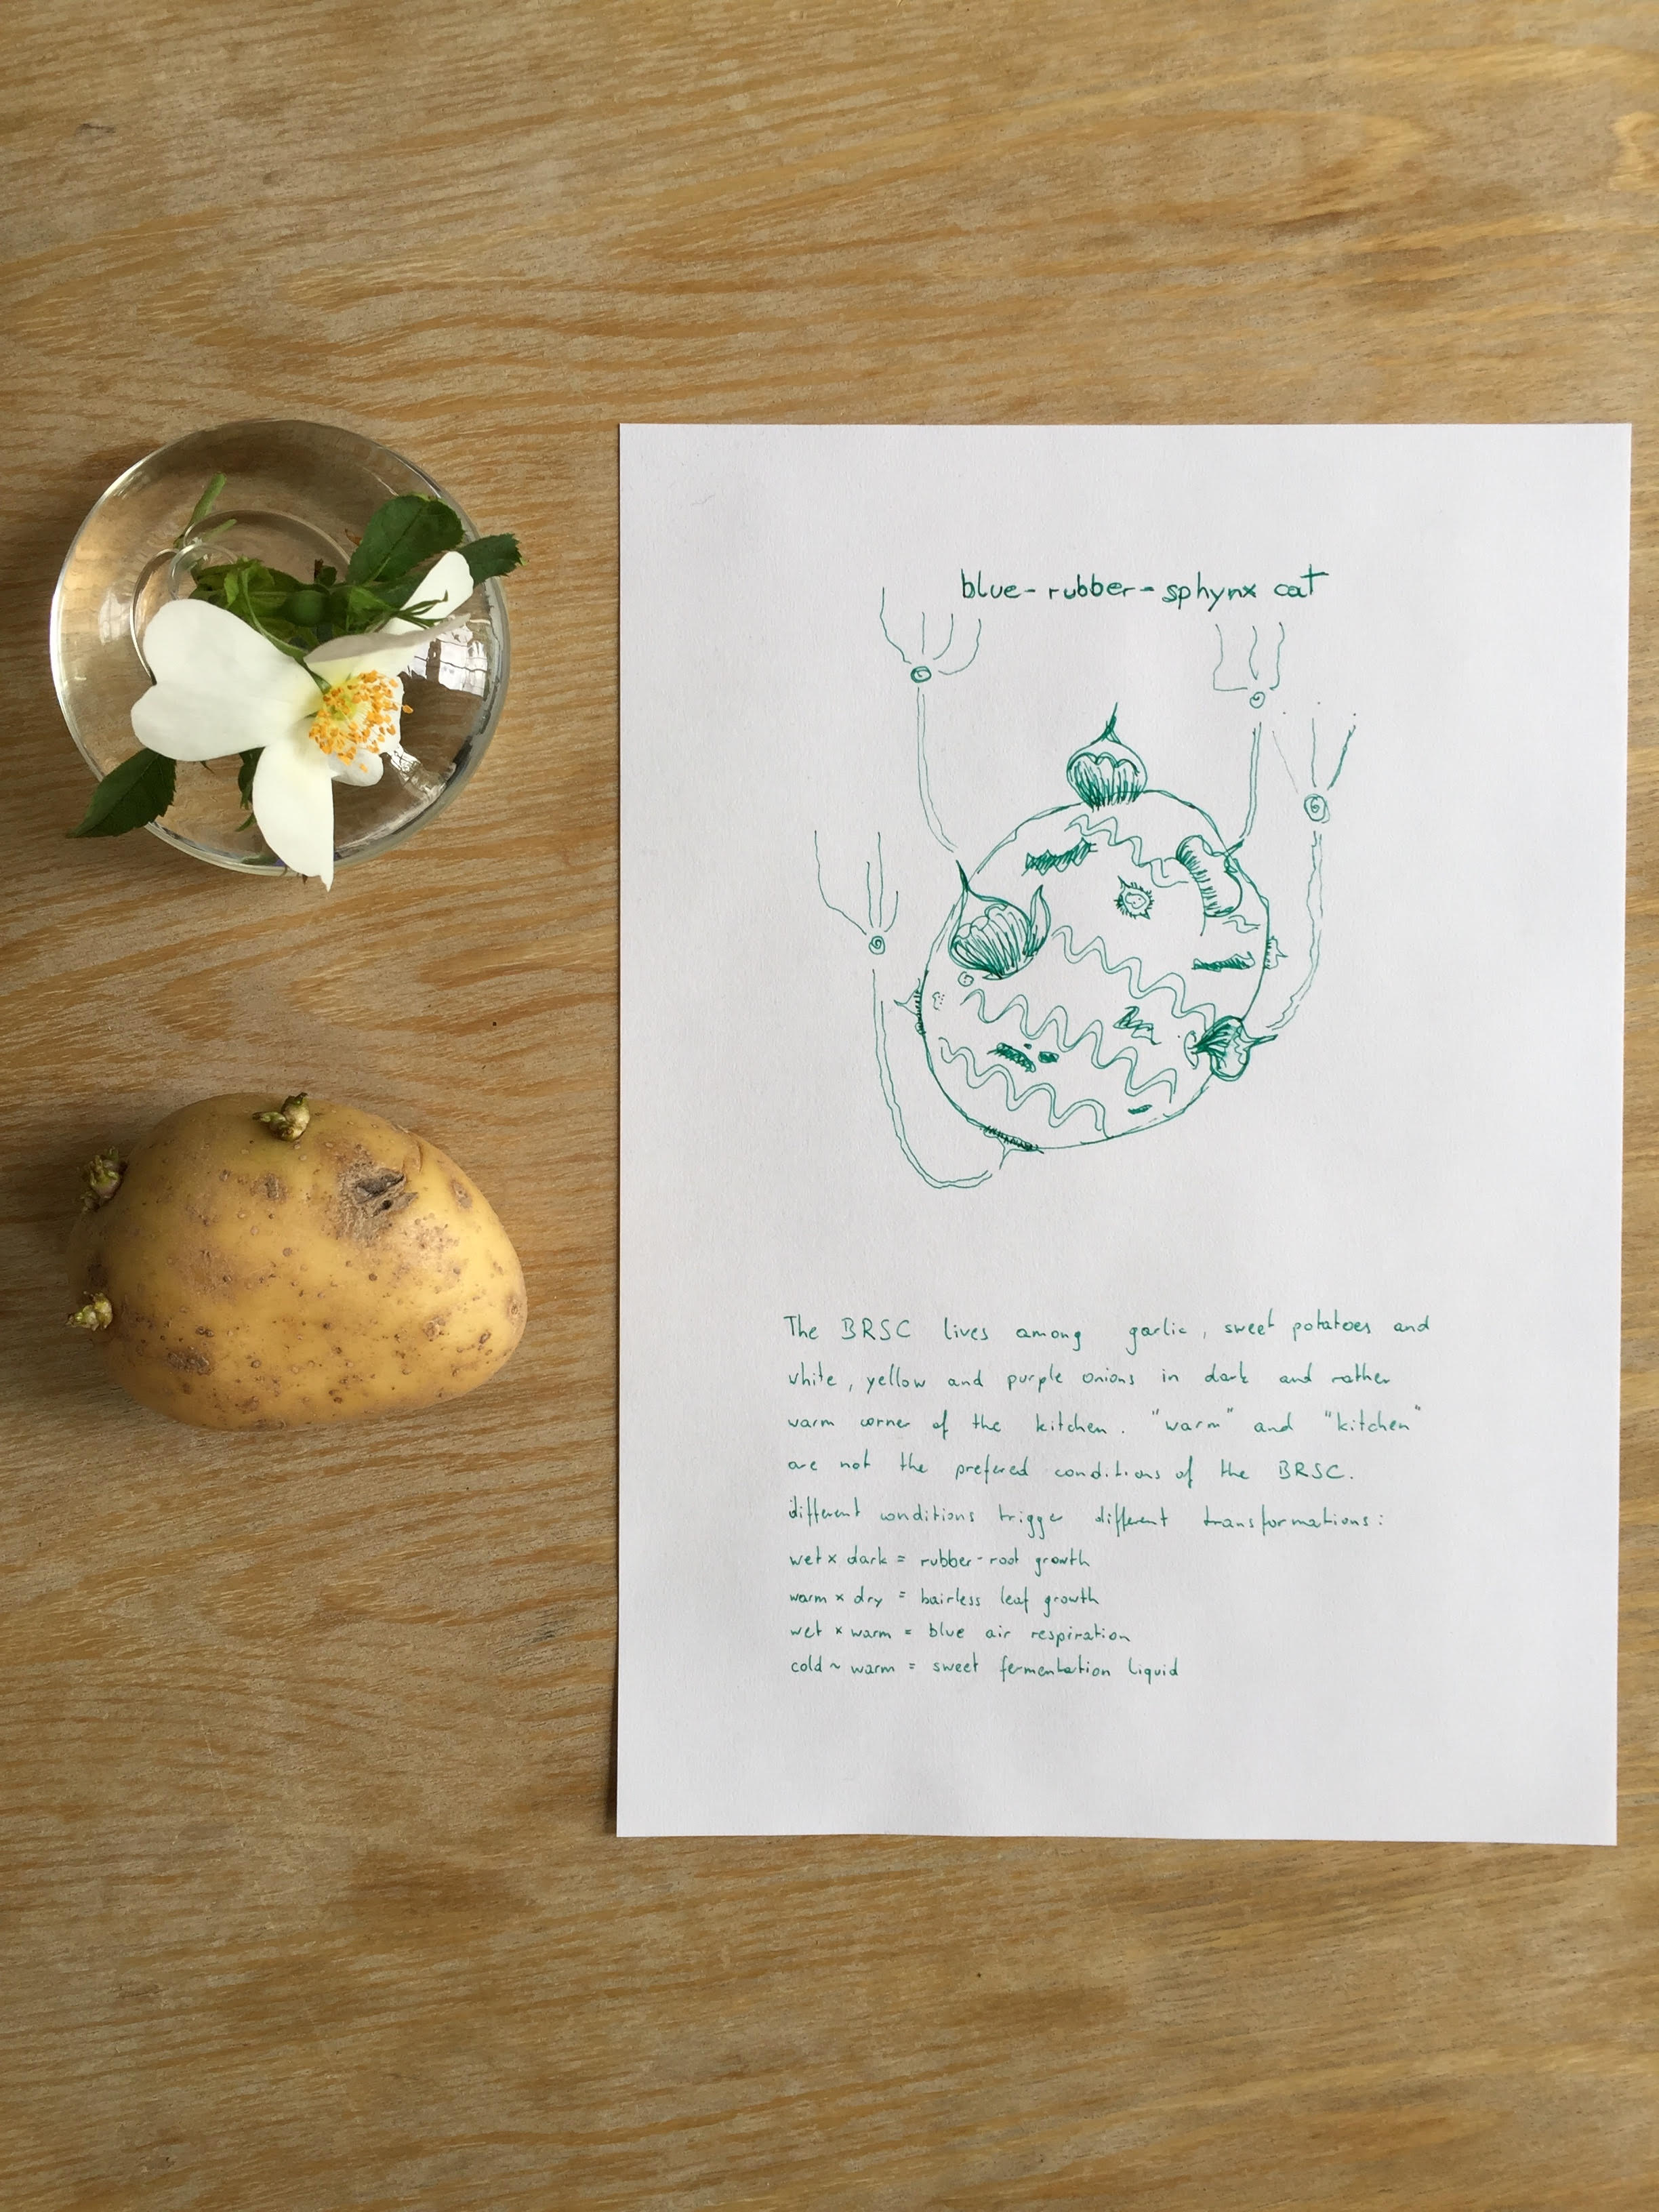 blue-rubber-sphynx cat
The BRSC lives among garlic, sweet potatoes and
white, yellow and purple onions in dark and rather
warm corner of the kitchen. "warm" and "kitchen"
are not the prefered conditions of the BRSC.
different conditions trigger different transformations:
wet x dark = rubber-root growth
warm x dry = hairless leaf growth
wet x warm = blue air respiration
cold ~ warm = sweet fermentation liquid